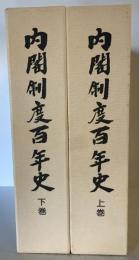 内閣制度百年史
上巻
内閣制度百年史
下巻